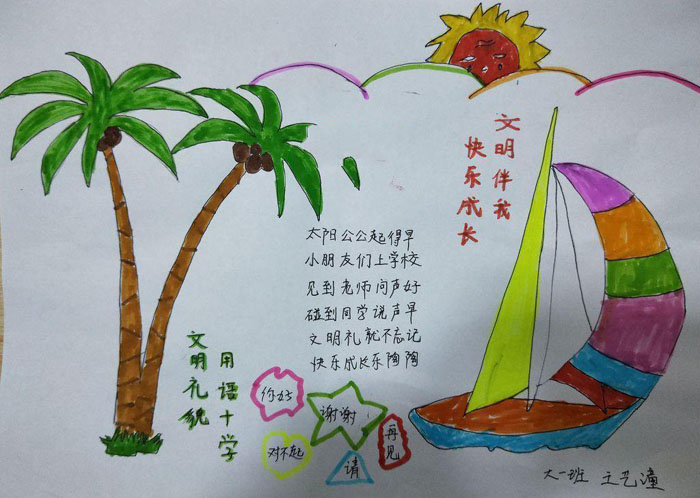 文明伴我
快乐成长
太阳公公起得早
小朋友们上学校
见到老师问声好
碰到同学说声早
文明礼就不忘记
快乐成长乐陶陶
文明礼貌
用语十学
你好
谢谢
再见
对不起
请
大一班 王艺潼